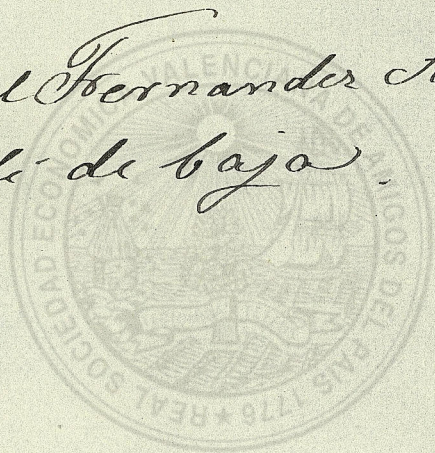 l Fernandez
de baja.
REAL SOCIEDAD ECONOMICA VALENCIANA DE AMIGOS DEL PAIS 1776